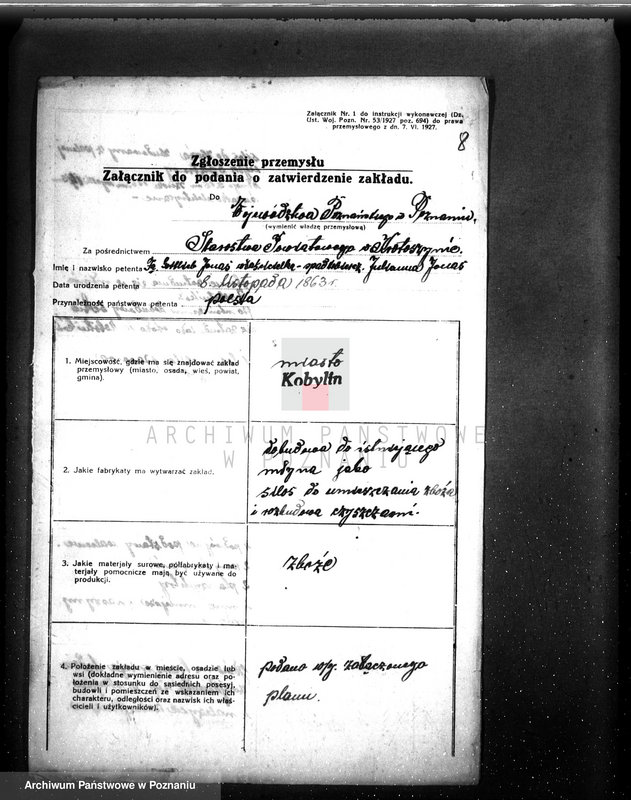 Załącznik Nr. 1 do instrukcji wykonawczej (Dz.
Ust. Woj. Pozn. Nr. 53/1927 poz. 694) do prawa
przemysłowego z dn. 7. VI. 1927.
8
Zgłoszenie przemysłu
Załącznik do podania o zatwierdzenie zakładu.
Do Wojewódzkwa Poznańskiego w Poznaniu,
(wymienić władzę przemysłową)
Za pośrednictwem Starostwa Powiatowego w Krotoszynie.
Imię i nazwisko petenta Jonas właścicielka - Julianna Jonas
Data urodzenia petenta 6 listopada 1863 r.
Przynależność państwowa petenta polska
1. Miejscowość, gdzie ma się znajdować zakład
przemysłowy (miasto, osada, wieś, powiat,
gmina).
miasto
Kobylin
ARCHIWUM PAŃSTWOWE
W POZNANIU
2. Jakie fabrykaty ma wytwarzać zakład.
dobudowa do istniejącego
młyna jako
silos do umieszczania zboża
i rozbudowa czyszczarni.
3. Jakie materjały surowe, półfabrykaty i ma-
terjały pomocnicze mają być używane do
produkcji.
zboże
4. Położenie zakładu w mieście, osadzie lub
wsi (dokładne wymienienie adresu oraz po-
łożenia w stosunku do sąsiednich posesyj,
budowli i pomieszczeń ze wskazaniem ich
charakteru, odległości oraz nazwisk ich właś-
cicieli i użytkowników).
podano wg. załączonego
planu.
Archiwum Państwowe w Poznaniu